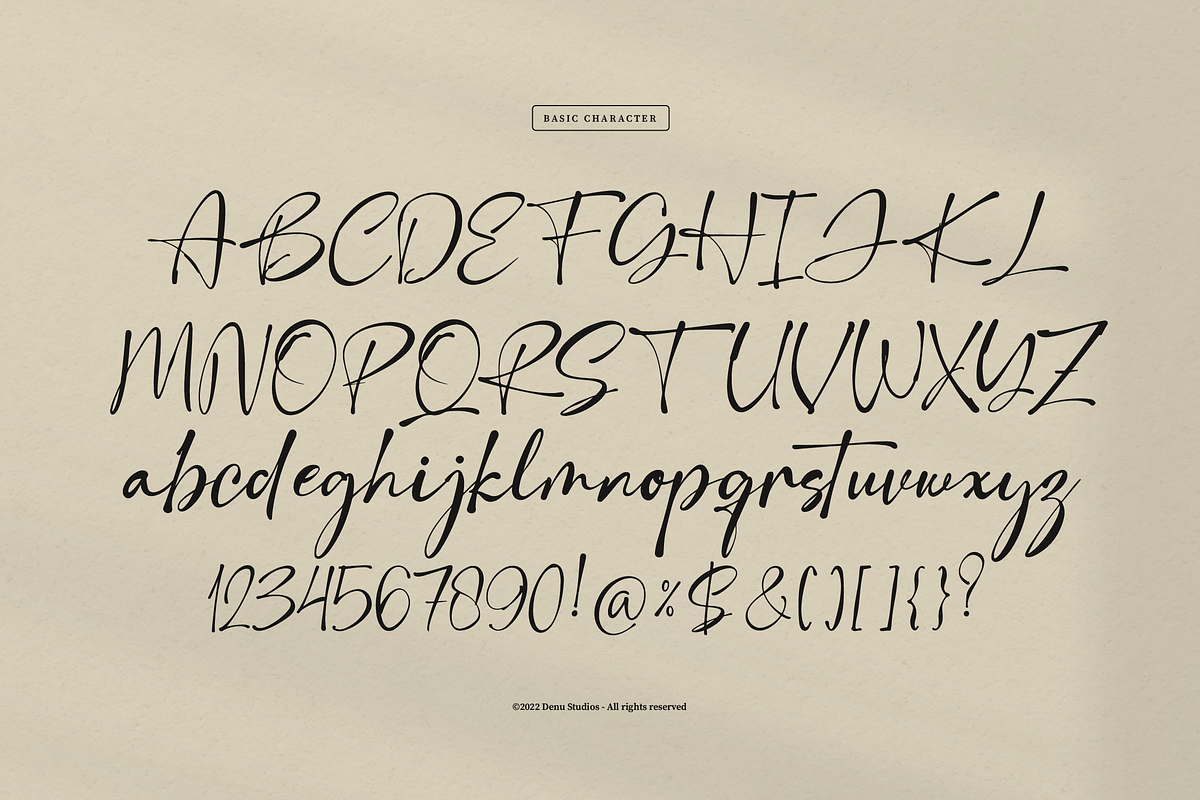 BASIC CHARACTER
ABCDEFGHIJKL
MNOPQRSTUVWXYZ
abcdeghijklmnopqrstuvwxyz
1234567890!@%$&()[]{}?
©2022 Denu Studios - All rights reserved